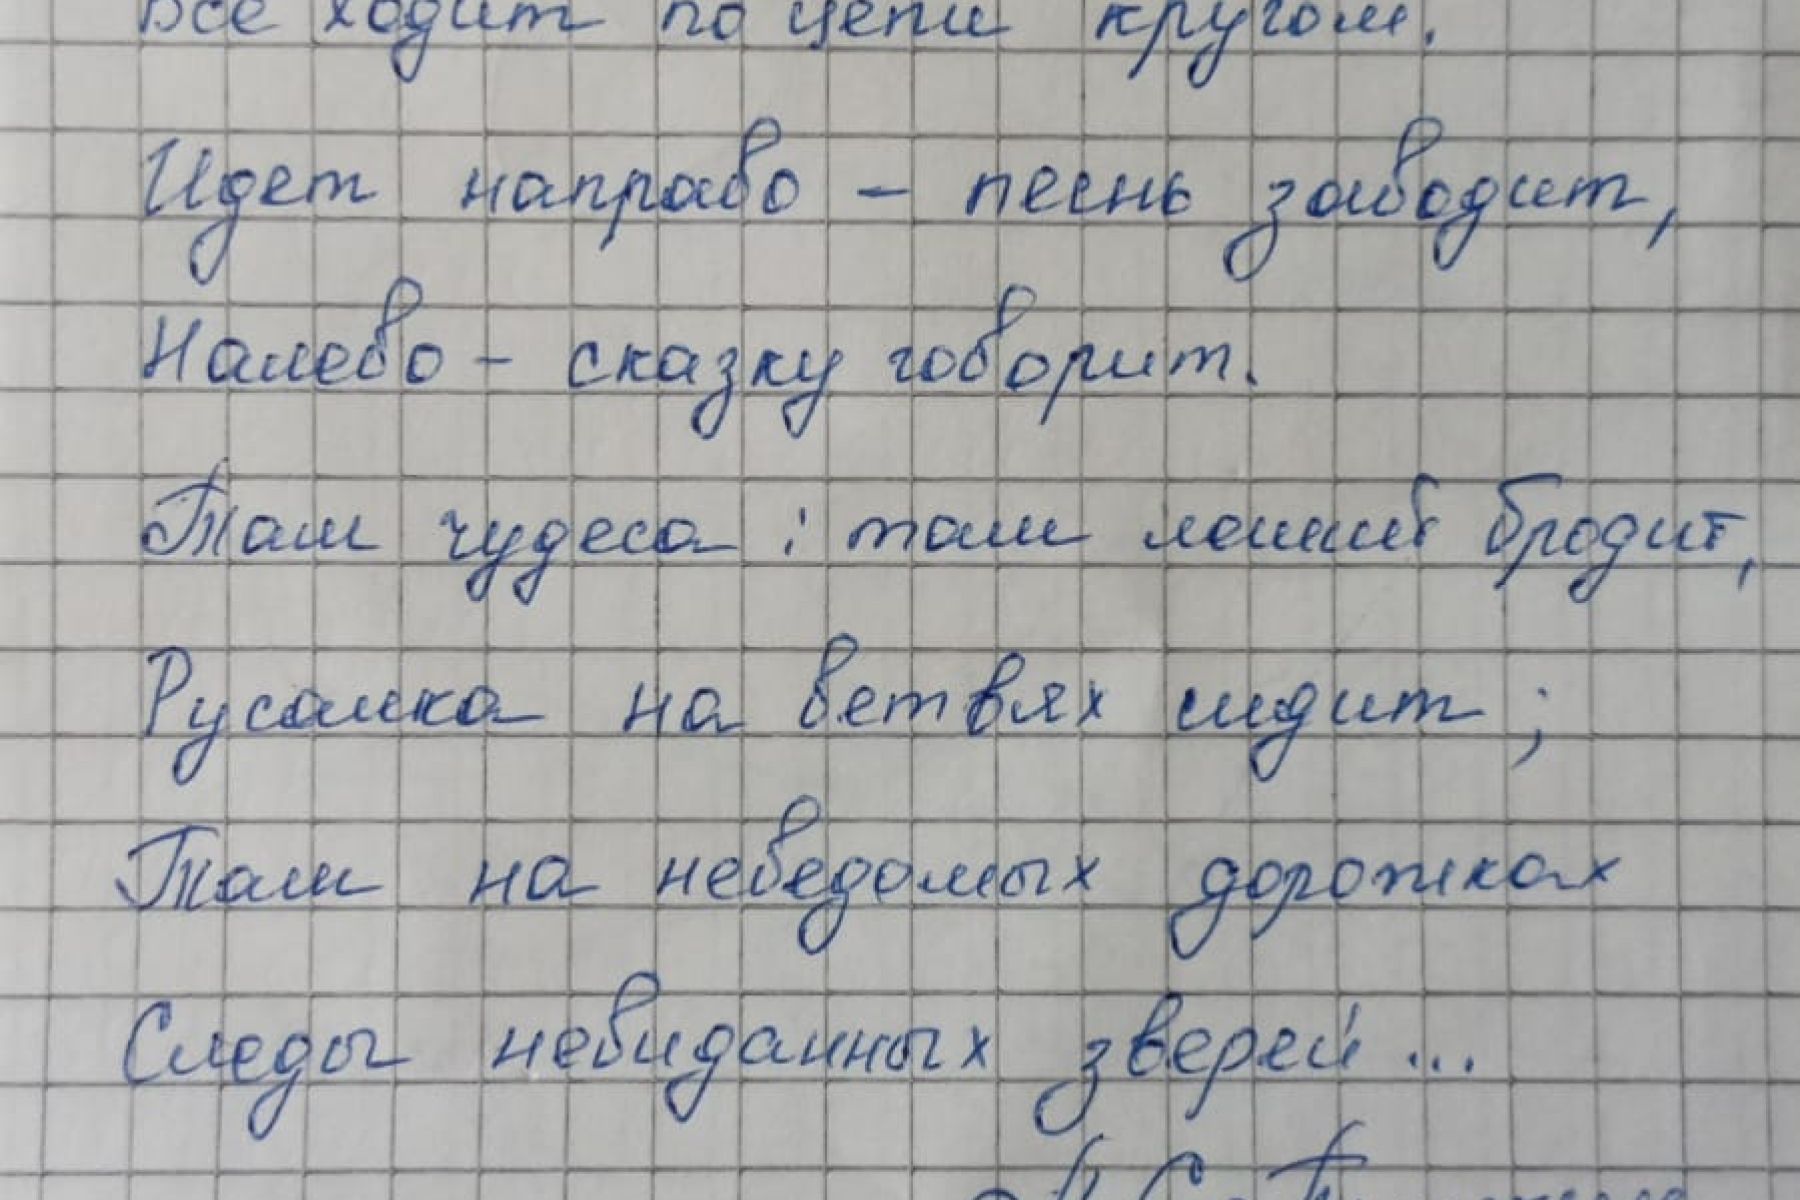 Все ходит по цепи кругом.
Идет направо – песнь заводит,
Налево – сказку говорит.
Там чудеса: там леший бродит,
Русалка на ветвях сидит;
Там на неведомых дорожках
Следы невиданных зверей...